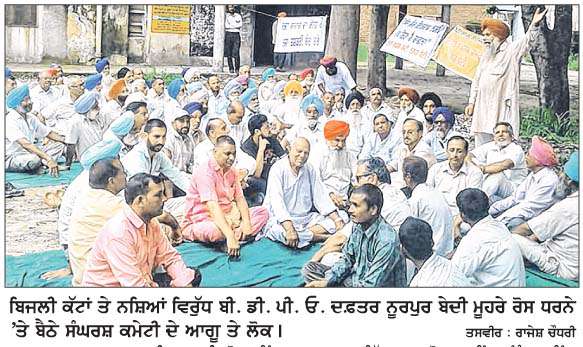 ਬਿਜਲੀ ਕੱਟਾਂ ਤੇ ਨਸ਼ਿਆਂ ਵਿਰੁੱਧ ਬੀ. ਡੀ. ਪੀ. ਓ. ਦਫ਼ਤਰ ਨੂਰਪੁਰ ਬੇਦੀ ਮੂਹਰੇ ਰੋਸ ਧਰਨੇ
'ਤੇ ਬੈਠੇ ਸੰਘਰਸ਼ ਕਮੇਟੀ ਦੇ ਆਗੂ ਤੇ ਲੋਕ।
ਤਸਵੀਰ : ਰਾਜੇਸ਼ ਚੌਧਰੀ